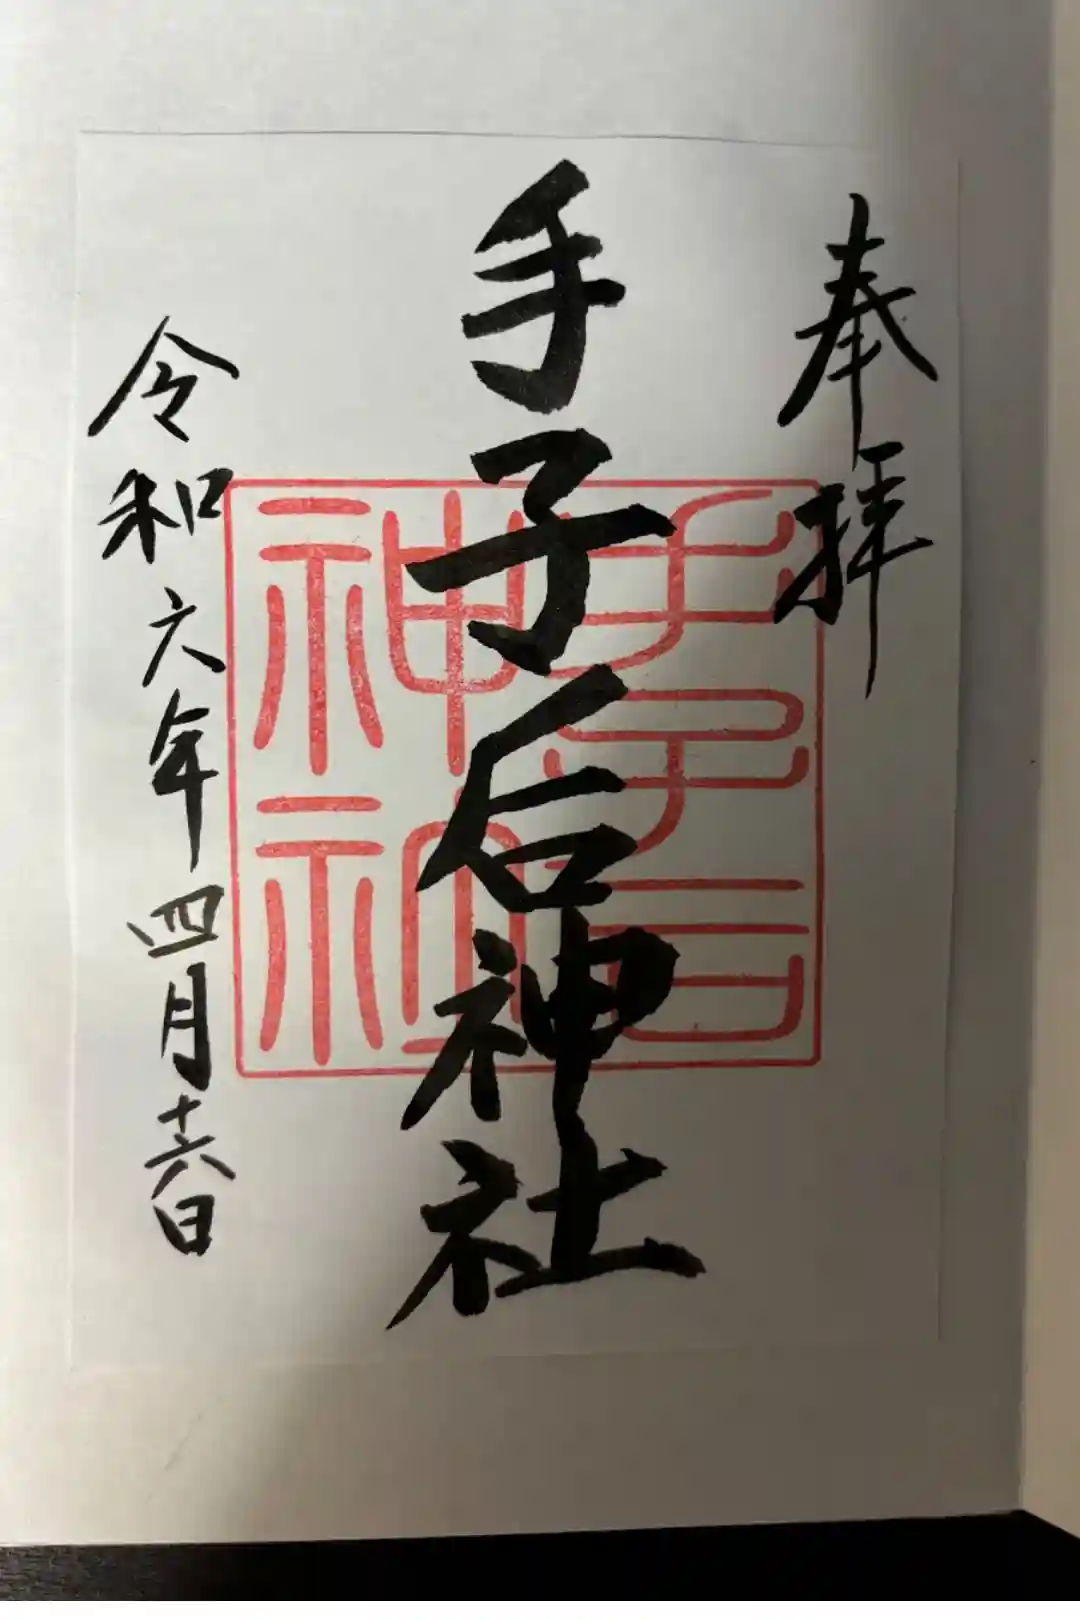 奉拝
手子后神社
手子后
神社
令和六年四月十六日